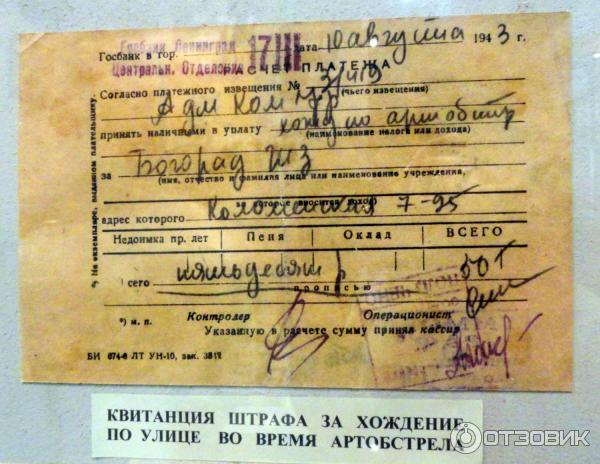 Госбанк в гор. Госбанк Ленинград 17 дата 10 августа 1943 г.
Центральн. Отделение
РАСЧЕТ ПЛАТЕЖА
Согласно платежного извещения № (чьего извещения)
Адм Ком
принять наличными в уплату хожд по артобстр
(наименование налога или дохода)
за Богорад
(имя, отчество и фамилия лица или наименование учреждения,
которое вносит доход)
адрес которого Коломенская 7-95
Недоимка пр. лет Пеня Оклад ВСЕГО
Всего пятьдесят р 50
прописью
*) м. п. Контролер Операционист
Указанную в расчете сумму принял кассир
БИ 674-8 ЛТ УН-10, зак.
*) На экземпляре, выданном плательщику.
КВИТАНЦИЯ ШТРАФА ЗА ХОЖДЕНИЕ
ПО УЛИЦЕ ВО ВРЕМЯ АРТОБСТРЕЛА
ОТЗОВИК